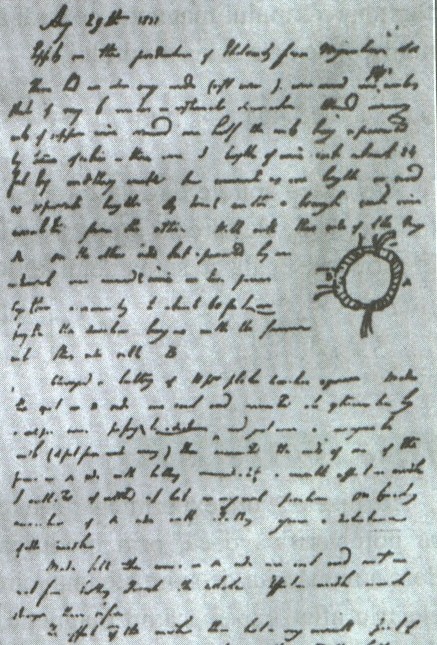 Aug 29th 1831
Expts on the production of Electricity from Magnetism
Have had an iron ring made (soft iron), iron round and inches
thick and ring 6 inches in external diameter Wound many
coils of copper wire round one half the coils being separated
by twine & calico there were 3 lengths of wire each about 24
feet long and they could be connected as one length or used
as separate lengths By trial with a trough each was
insulated from the other Will call this side of the ring
A on the other side but separated by an
interval was wound wire in two pieces
together amounting to about 60 feet in
length the direction being as with the former
coils this side call B
Charged a battery of 10 pr plates 4 inches square Made
the coil on B side one coil and connected its extremities by
a copper wire passing to a distance and just over a magnetic
needle (3 feet from iron ring) then connected the ends of one of the
pieces on A side with battery immediately a sensible effect on needle
It oscillated & settled at last in original position On breaking
connection of A side with Battery again a disturbance
of the needle
Made all the wires on A side one coil and sent current
from battery through the whole Effect on needle much
stronger than before
The effect on the needle then but a very small part of